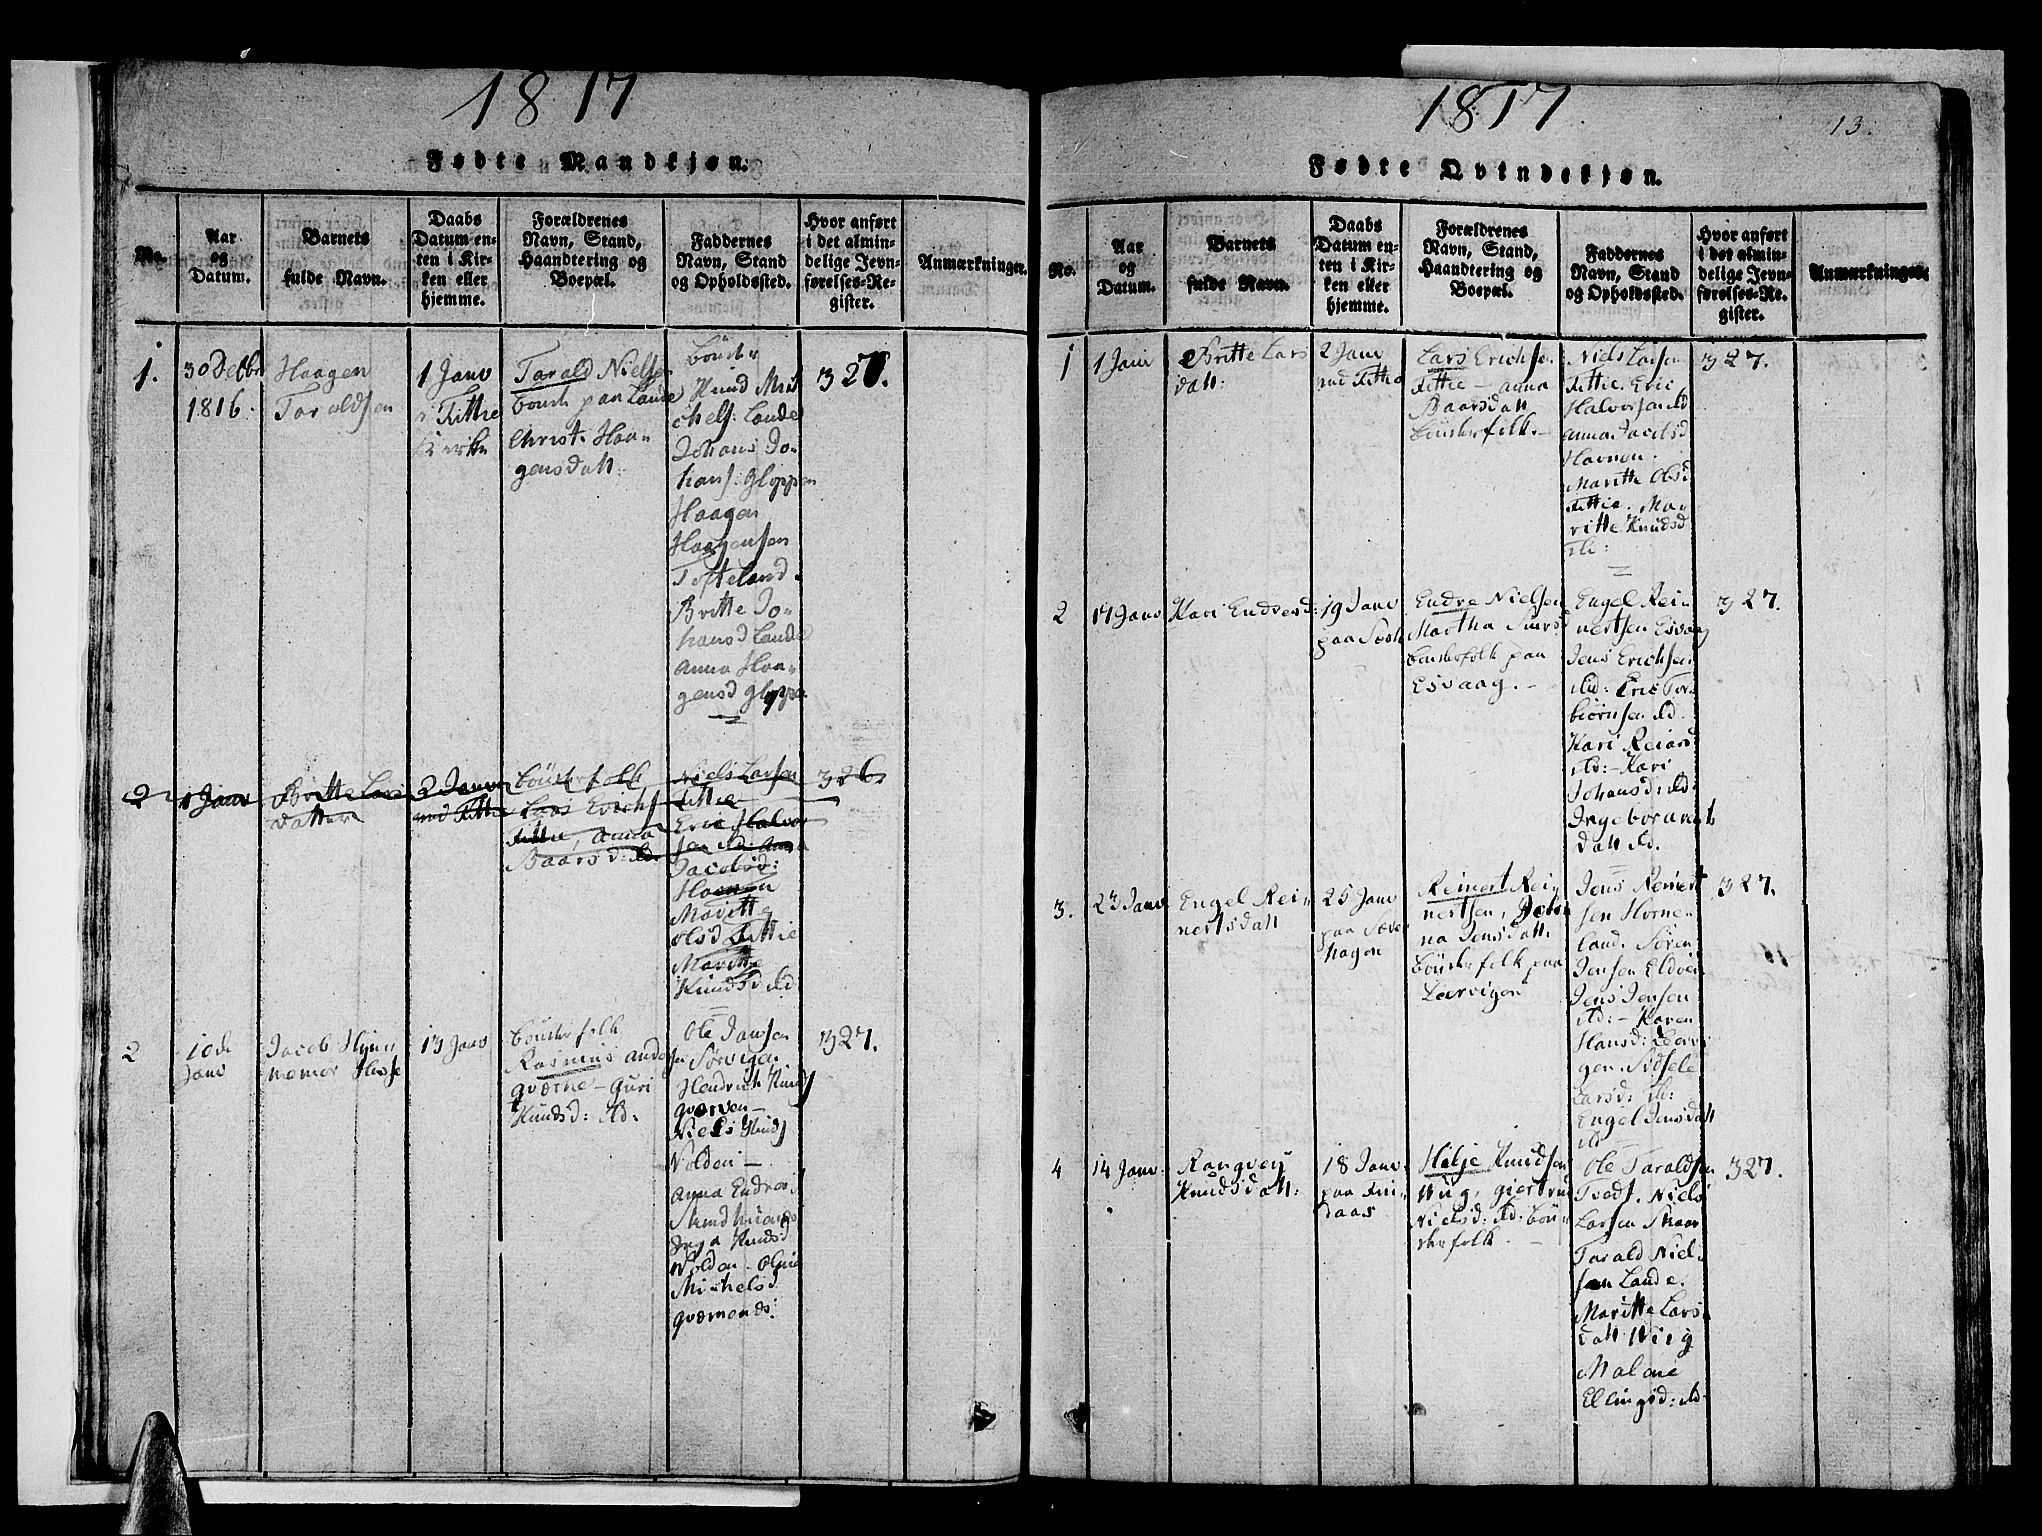 1817
Fødte Mandkjøn.
No.
Aar
og
Datum.
Barnets
fulde Navn.
Daabs
Datum en-
ten i Kir-
ken eller
hjemme.
Forældrenes
Navn, Stand,
Haandtering og
Boepæl.
Faddernes
Navn, Stand
og Opholdssted.
Hvor anført
i det almin-
delige Jevn-
førelses-Re-
gister.
Anmærkninger.
1.
30 Decbr
1816.
Haagen
Taraldsen
1 Janv
i Fittie
Kirke
Tarald Nielsen
bonde paa Lande
Christi Haa-
gensdatt:
bönder
Knud Mi-
chels: Lande
Johans Jo-
hans: Gloppen
Haagen
Haagensen
Tofteland.
Britte Jo-
hansd Lande
Anna Haa-
gensd Gloppe
327.
2
1 Janv
Britte Lars
datter
2 Janv
ved Fittie
bönderfolk
Lars Erichs
Fittie, Anna
Baarsd: ibd
Niels Larsen
Fittie
Eric Halvor
sen ibd: Anna
Jacobsd:
Havnen
Maritte
Olsd Fittie
Maritte
Knudsd ibd
326.
2
10de
Janv
Jacob
13 Janv
bönderfolk
Rasmus And
Qværne - Guri
Knudsd: ibd.
Ole Jansen
Sørvigen
Hendrich Knuds
Qværven -
Niels Knuds
Volden -
Anna Endres
Inga Knudsd
Volden -
Michelsd
327.
1817
13.
Fødte Qvindekjøn.
No.
Aar
og
Datum.
Barnets
fulde Navn.
Daabs
Datum en-
ten i Kir-
ken eller
hjemme.
Forældrenes
Navn, Stand,
Haandtering og
Boepæl.
Faddernes
Navn, Stand
og Opholdssted.
Hvor anført
i det almin-
delige Jevn-
førelses-Re-
gister.
Anmærkninger.
1
1 Janv
Britte Lars
datt:
2 Janv
ved Fittie
Lars Erichsen
Fittie - Anna
Baarsdatt
bönderfolk. -
Niels Larsen
Fittie. Eric
Halvorsen ibd
Anna Jacobsd
Havnen.
Maritte Olsd:
Fittie. Ma-
ritte Knudsd
ib:
327.
2
17 Janv
Kari Endresd:
19 Janv
paa
Endre Nielsen
Martha
bönderfolk paa
Esvaag. -
Engel Rei-
nertsen Esvaag
Jens Erichsen
ibd: Eric Tor-
biørnsen ibd.
Kari Reiarsd
ibd: - Kari
Johansd: ibd:
Ingebor
datt ibd.
327.
3.
23 Janv
Engel Rei-
nertsdatt
25 Janv
paa
hagen
Reinert Rei-
nertsen,
na Jensdatt.
bönderfolk paa
Lervigen
Jens Reinert
sen Horne-
land. Søren
Jensen Eldøen
Jens Jensen
ibd: - Karen
Hansd: Lervi-
gen. Sidsele
Larsd: ib:
Engel Jensdatt
ibd
327.
4
14 Janv.
Rangvey
Knudsdatt:
18 Janv.
paa
daas
Helje Knudsen
Wiig, Giertrud
Nielsd: ibd: bön-
derfolk. -
Ole Taraldsen
Tvedt. Niels
Larsen
Tarald Niel-
sen Lande.
Maritte Lars
datt Wiig
Malene
Ellingsd: ibd.
327.